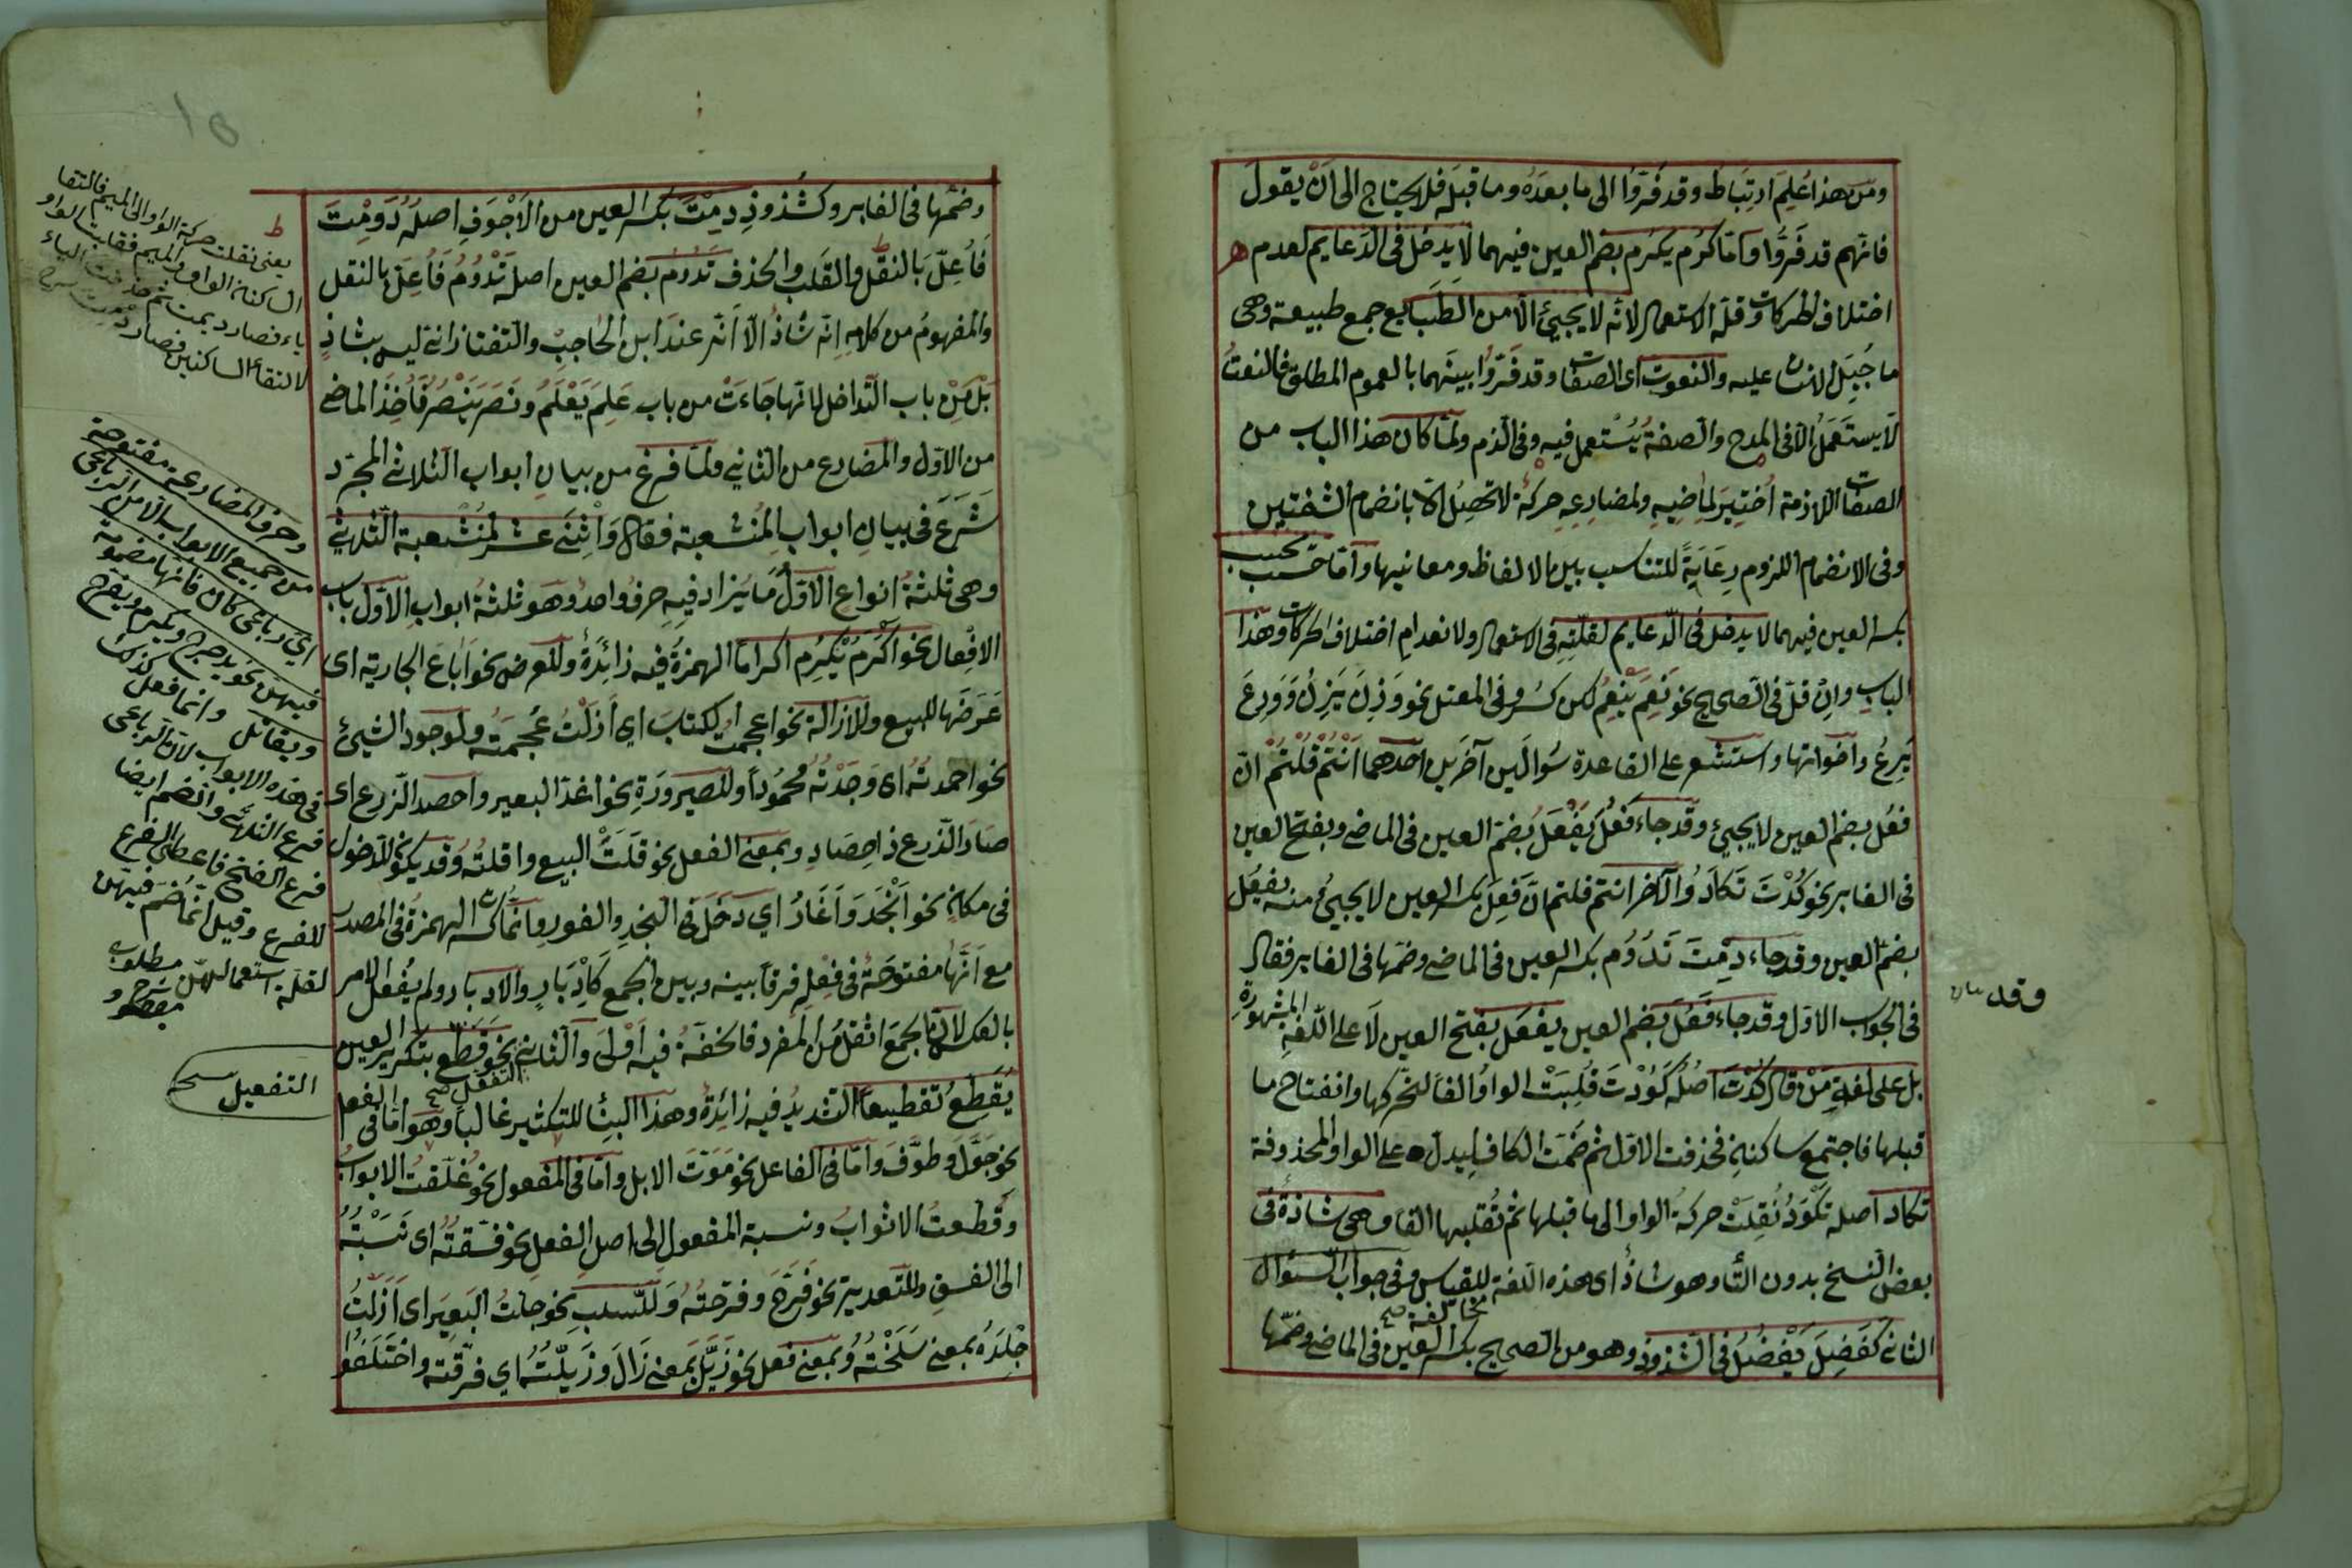 ومن هذا عُلِمَ ارتِبَاط وقد فَرَّوا الى ما بعدَهُ وما قبلَه فلا يحتاج الى اَنْ يقولَ
فانّهم قد فَرَّوْا وَامّا كرُم يكرُم بضم العين فيهما لا يدخل فى الدّعايم لعدم
اختلاف الحركات وقلّة الاستعمال لانّه لا يجيئ الّا من الطَّبَايع جمع طبيعة وهى
ما جُبِلَ الانسان عليه والنعوت اى الصفات وقد فَرَّوْا بينَهما بالعموم المطلق فالنعتُ
لَا يستَعمَلُ الّا فى المدح والصّفةُ يُسْتعمل فيه وفى الذم ولمّا كان هذا الباب من
الصفات اللازمة اُختِيرَ لِمَاضِيهِ ولمضارِعِهِ حركةٌ لا تحصُلُ الّا بانضمام الشفتين
وفى الانضمام اللزوم رِعَايَةً للتناسب بين الالفاظ ومعانيها وامّا حَسِب يحسِب
بكسر العين فيهما لا يدخل فى الدّعايم لقلّتِهِ فى الاستعمال ولانعدامِ اختلاف الحركات وهذا
الباب وانِ قلّ فى الصّحيح نحو نَعِمَ يَنْعِمُ لكن كَثُر فى المعتل نحو وَزِنَ يَزِنُ وَوَرِعَ
يَرِعُ واخواتها واستشعر على القاعدة سُوالَين آخَرَين احدهما اَنْتُمْ قُلْتُمْ انّ
فعُل بضم العين لا يجيئ وقد جاء فَعُلَ يَفْعَلُ بضمّ العين فى الماضى وبفتح العين
فى الغابر نحو كُدْتَ تَكادُ والآخر انتم قلتم انّ فَعِلَ بكسر العين لا يجيئُ منه يفعُل
بضمّ العين وقد جاء دِمْتَ تَدُوُم بكسر العين فى الماضى وضمّها فى الغابر فقال
فى الجواب الاوّل وقد جاء فَعُلَ بضم العين يفعَل بفتح العين لَا على اللّغةِ المشهورة
بل على لغةِ مَنْ قال كُدْتَ اصْلُه كَوُدْتَ قُلِبَتْ الواوُ الفاً لتحرّكها وانفتاح ما
قبلها فاجتمع ساكنين فحذفت الاوّل ثم ضُمَت الكاف ليدلّ على الواو المحذوفة
تكاد اصله تَكْوَدُ نُقِلَتْ حركةُ الواو الى ما قبلها ثم تُقلبها الفا وهى شاذّةٌ فى
بعض النسخ بدون التّا وهو شاذٌ اى هذه اللّغة للقياس وفى جواب السّؤال
مخالفة صح
الثانى كَفَضِلَ يَفْضُلُ فى الشّذوذ وهو من الصحيح بكسر العين فى الماضى وضمّها
وقد
وضمّها فى الغابر وكشُذوذِ دِمْتَ بكسر العين من الاَجْوَفِ اصلُهُ دَوِمْتَ
فَاُعِلّ بالنقل والقَلب والحذف تَدُوُم بضم العين اصله تَدْوُمُ فَاُعِلّ بالنقل
والمفهومُ من كلامِهِ انّه شاذٌ الّا اَنّه عندَ ابن الحاجبِ والتّفتازانى ليس بشاذٍ
بَلْ مِنْ باب التَّداخل لانّها جَاءَتْ من باب عَلِمَ يَعْلَمُ ونَصَرَ يَنْصُرُ فَاُخِذَ الماضى
من الاوّل والمضارع من الثانى ولمّا فرغ من بيانِ ابواب الثلاثى المجرّد
شَرَعَ فى بيانِ ابوابِ المُنشعبة فقال وَاثْنَىْ عشَر لمُنْشعبة الثلاثى
وهى ثلثةُ انواعٍ الاوّلُ مَا يُزاد فيهِ حرفٌ واحدٌ وهو ثلثةُ ابوابٍ الاوّل باب
الافعال نحو اَكْرَمَ يُكْرِمُ اكرامًا الهمزةُ فيه زائِدَةٌ وللعرض نحو اَبَاعَ الجارية اى
عَرَضَها للبيع وللازالة نحو اعجمت الكتابَ اي اَزَلْتُ عُجمَتَه ولوجود الشيئ
نحو احمدتُه اى وَجَدْتُهُ محمُوداً وللصيرورَةِ نحو اغذّ البعير واحصد الزرع اى
صَارَ الزرع ذا حِصَادٍ وبمعنى الفعل نحو قَلتَ البيع واقلتُه وقد يكون للدّخول
فى مكانٍ نحو اَنْجَدَ وَاَغَارُ اي دَخَلَ فى النجدِ والغورِ وانّما كسر الهمزةُ فى المصدر
مع اَنَّها مفتوحَةٌ فى فِعْلِهِ فرقاً بينه وبين الجمع كَاِدْبَارٍ والادبار ولم يُفعل الامر
بالعكس لانّ الجمعَ اثقلُ مِن المفرد فالخفّةُ فيه اَوْلىَ والثانى نحو قَطّع بتكرير العين
التفعيل صح
يُقَطّعِ تَقطيعاً التشديدُ فيه زائدةٌ وهذا البناء للتكثير غالباً وهو امّا فى الفعل
نحو جَوَّلَ وطوَّفَ وامّا فى الفاعل نحو مَوّتَ الابل وامّا فى المفعول نحو غلّقتُ الابوابَ
وقَطّعتُ الاثوابَ ونسبة المفعول الى اصلِ الفعلِ نحو فَسّقتُه اى نَسَبْتُهُ
الى الفسق وللتعدية نحو فَرَّحَ وفرّحتُه وَللسّلبِ نحو جلّدتُ البَعيرَ اى اَزَلْتُ
جِلدَهُ بمعنى سَلَخْتُه وبمعنى فعل نحو زَيّلَ بمعنى زَالَ وزَيلّتُه اي فرّقته واختَلَفوا
ط
يعنى نقلت حركة الواو الى الميم فالتقا
الساكنان الواو والميم فقلبت الواو
ياء فصار ديمت ثم حذفت الياء
لالتقاء الساكنين فصار دمت شرح
وحرف المضارعة مفتوحة
من جميع الابواب الّا من الرباعى
اي رباعى كان فانها مضمومة
فيهنّ نحو يدحرج ويكرم ويفرح
ويقاتل وانما فعل كذلك
فى هذه الابواب لانّ الرباعى
فرع الثلاثى والضم ايضا
فرع الفتح فاعطى الفرع
للفرع وقيل انما ضم فيهنّ
لقلّة استعمالهنّ شرح
مطلوب
التفعيل